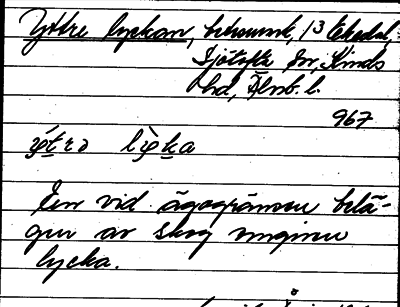 Yttre lyckan, bebeumnk, 13 Ekedal,
Sjötofta sn, Kinds
hd, Älvsb. l.
967
En vid ägogränsen belä-
gen av skog omgiven
lycka.